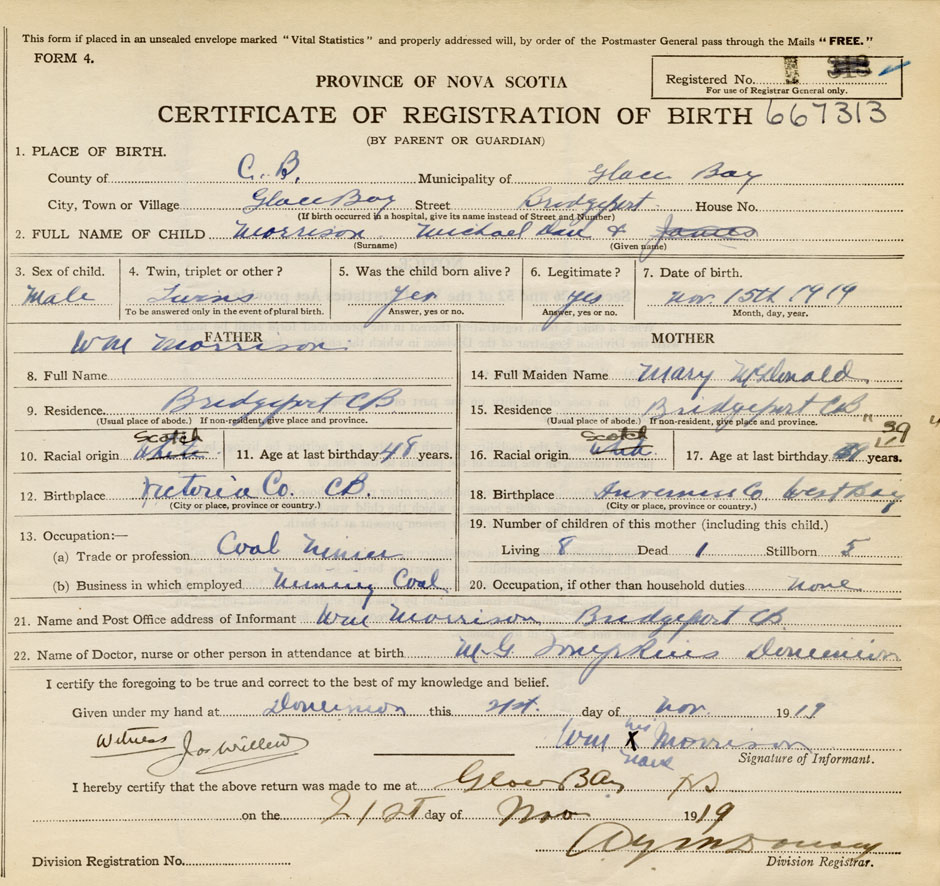 This form if placed in an unsealed envelope marked "Vital Statistics" and properly addressed will, by order of the Postmaster General pass through the Mails "FREE."
FORM 4.
PROVINCE OF NOVA SCOTIA
Registered No. 313
For use of Registrar General only.
CERTIFICATE OF REGISTRATION OF BIRTH 667313
(BY PARENT OR GUARDIAN)
1. PLACE OF BIRTH.
County of C. B. Municipality of Glace Bay
City, Town or Village Glace Bay Street Bridgeport House No.
(If birth occurred in a hospital, give its name instead of Street and Number)
2. FULL NAME OF CHILD Morrison Michael Dan & James
(Surname) (Given name)
3. Sex of child. 4. Twin, triplet or other? 5. Was the child born alive? 6. Legitimate? 7. Date of birth.
Male Twins Yes Yes Nov. 15th 1919
To be answered only in the event of plural birth. Answer, yes or no. Answer, yes or no. Month, day, year.
FATHER MOTHER
Wm Morrison
8. Full Name 14. Full Maiden Name Mary McDonald
9. Residence Bridgeport CB 15. Residence Bridgeport CB
(Usual place of abode.) If non-resident, give place and province. (Usual place of abode.) If non-resident, give place and province.
Scotch Scotch 39
10. Racial origin White 11. Age at last birthday 48 years. 16. Racial origin White 17. Age at last birthday years.
12. Birthplace Victoria Co. CB. 18. Birthplace Inverness Co West Bay
(City or place, province or country.) (City or place, province or country.)
13. Occupation:— 19. Number of children of this mother (including this child.)
(a) Trade or profession Coal Miner Living 8 Dead 1 Stillborn 5
(b) Business in which employed Mining Coal 20. Occupation, if other than household duties None
21. Name and Post Office address of Informant Wm Morrison Bridgeport CB
22. Name of Doctor, nurse or other person in attendance at birth M. G Tompkins Dominion
I certify the foregoing to be true and correct to the best of my knowledge and belief.
Given under my hand at Dominion this 21st. day of Nov. 1919
Witness Jos Willew Wm his X mark Morrison
Signature of Informant.
I hereby certify that the above return was made to me at Glace Bay NS
on the 21st day of Nov 1919
Division Registration No. Division Registrar.